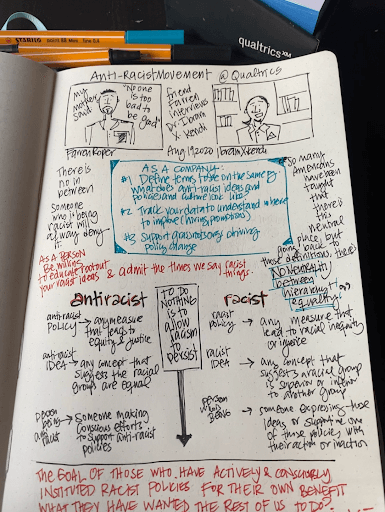 STABILO
qualtrics
ANTI-RACIST MOVEMENT @ Qualtrics
My mother said
"No one is too bad to be good"
Friend Farren interviews Dr. Ibram X Kendi
Farren Roper
Aug 19, 2020
Ibram X Kendi
There is no in between
Someone who is being racist will always deny it.
AS A COMPANY
#1 Define terms to be on the same pg
what does anti-racist ideas and
policies and culture look like
#2 Track your data to understand where
to improve (hiring, promotions)
#3 Support grassroots orgs driving
policy change
So many
Americans
have been
taught
that
there's
this
neutral
place, but
going back to
these definitions, there's
NO NEUTRAL
between
hierarchy &
equality
AS A PERSON
Be willing
to educate & root out
your racist ideas & admit the times we say racist
things.
antiracist
TO DO
NOTHING
IS TO
ALLOW
RACISM
TO
PERSIST
racist
antiracist
POLICY → any measure
that leads to
equity & justice
antiracist
IDEA → any concept that
suggests the racial
groups are equal
person
being
→ Someone making
conscious efforts
to support anti-racist
policies
racist
POLICY → any measure that
lead to racial inequity
or injustice
racist
IDEA → any concept that
suggests a racial group
is superior or inferior
to another group
person
who is
being
→ someone expressing those
ideas or supporting one
of those policies with
their action or inaction
THE GOAL OF THOSE WHO HAVE ACTIVELY & CONSCIOUSLY
INSTITUTED RACIST POLICIES FOR THEIR OWN BENEFIT
WHAT THEY HAVE WANTED THE REST OF US TO DO